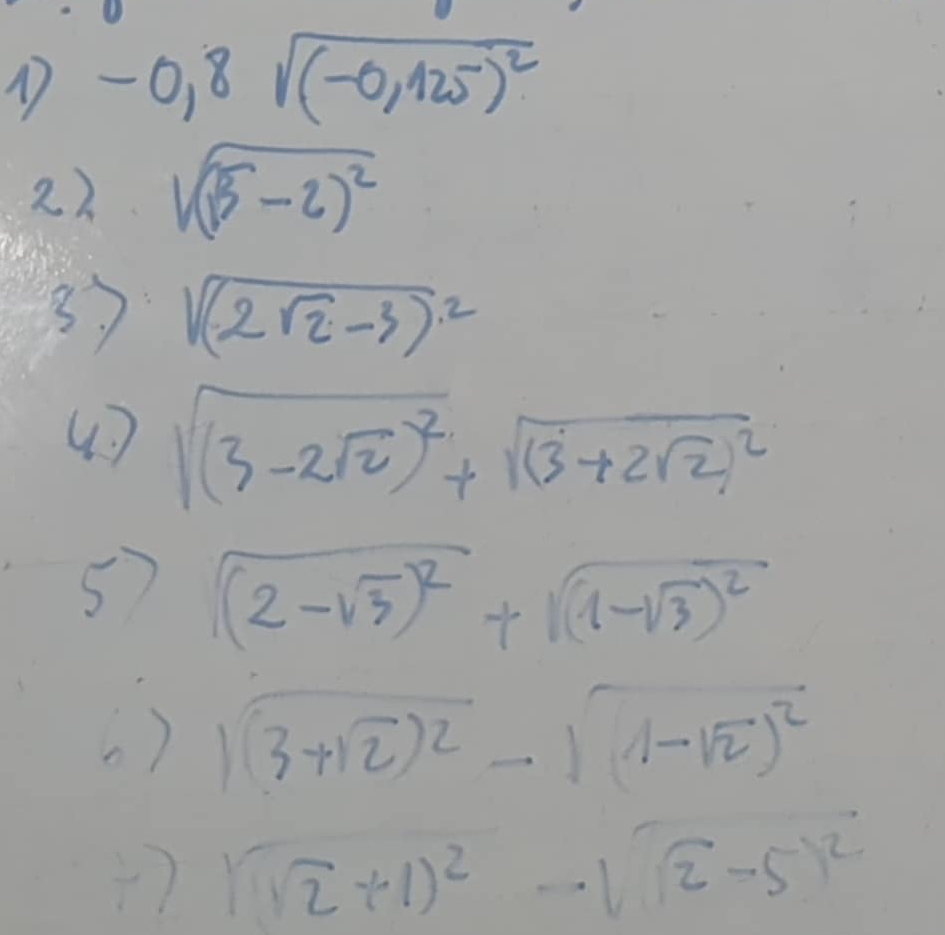 1) -0,8 √(-0,125)²
2) √(√3 - 2)²
3) √(2√2 - 3)²
4) √(3 - 2√2)² + √(3 + 2√2)²
5) √(2 - √3)² + √(1 - √3)²
6) √(3 + √2)² - √(1 - √2)²
7) √(√2 + 1)² - √(√2 - 5)²